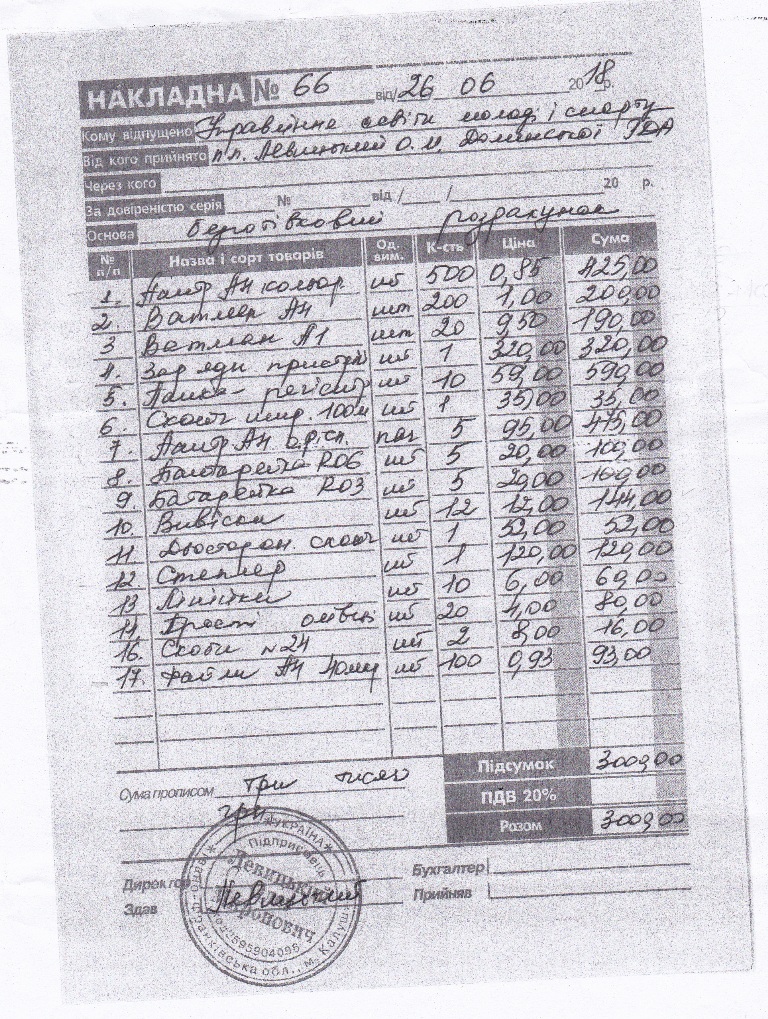 НАКЛАДНА № 66 від 26 06 2018 р.
Кому відпущено Управління освіти молоді і спорту
Від кого прийнято п.п. Левицький О.М. Долинської РДА
Через кого
За довіреністю серія № від / / 20 р.
Основа безготівковий розрахунок
№ п/п Назва і сорт товарів Од. вим. К-сть Ціна Сума
1. Папір А4 кольор. шт 500 0,85 425,00
2. Ватман А4 шт 200 1,00 200,00
3 Ватман А1 шт 20 9,50 190,00
4. Заряди пристрій шт 1 320,00 320,00
5. Папка-регістр шт 10 59,00 590,00
6. Скотч шир. 100м шт 1 35,00 35,00
7. Папір А4 офісн. пач 5 95,00 475,00
8. Батарейка R06 шт 5 20,00 100,00
9. Батарейка R03 шт 5 20,00 100,00
10. Вивіски шт 12 12,00 144,00
11. Двосторон. скотч шт 1 52,00 52,00
12 Степлер шт 1 120,00 120,00
13 Лінійки шт 10 6,00 60,00
14. Прості олівці шт 20 4,00 80,00
16. Скоби №24 шт 2 8,00 16,00
17. Файли А4 40мк шт 100 0,93 93,00
Підсумок 3000,00
Сума прописом три тисячі
ПДВ 20%
грн
Разом 3000,00
Директор
Бухгалтер
Здав Левицький
Прийняв
* УКРАЇНА *
Підприємець
Левицький
Миронович
2595904096
Франківська обл., м. Калуш